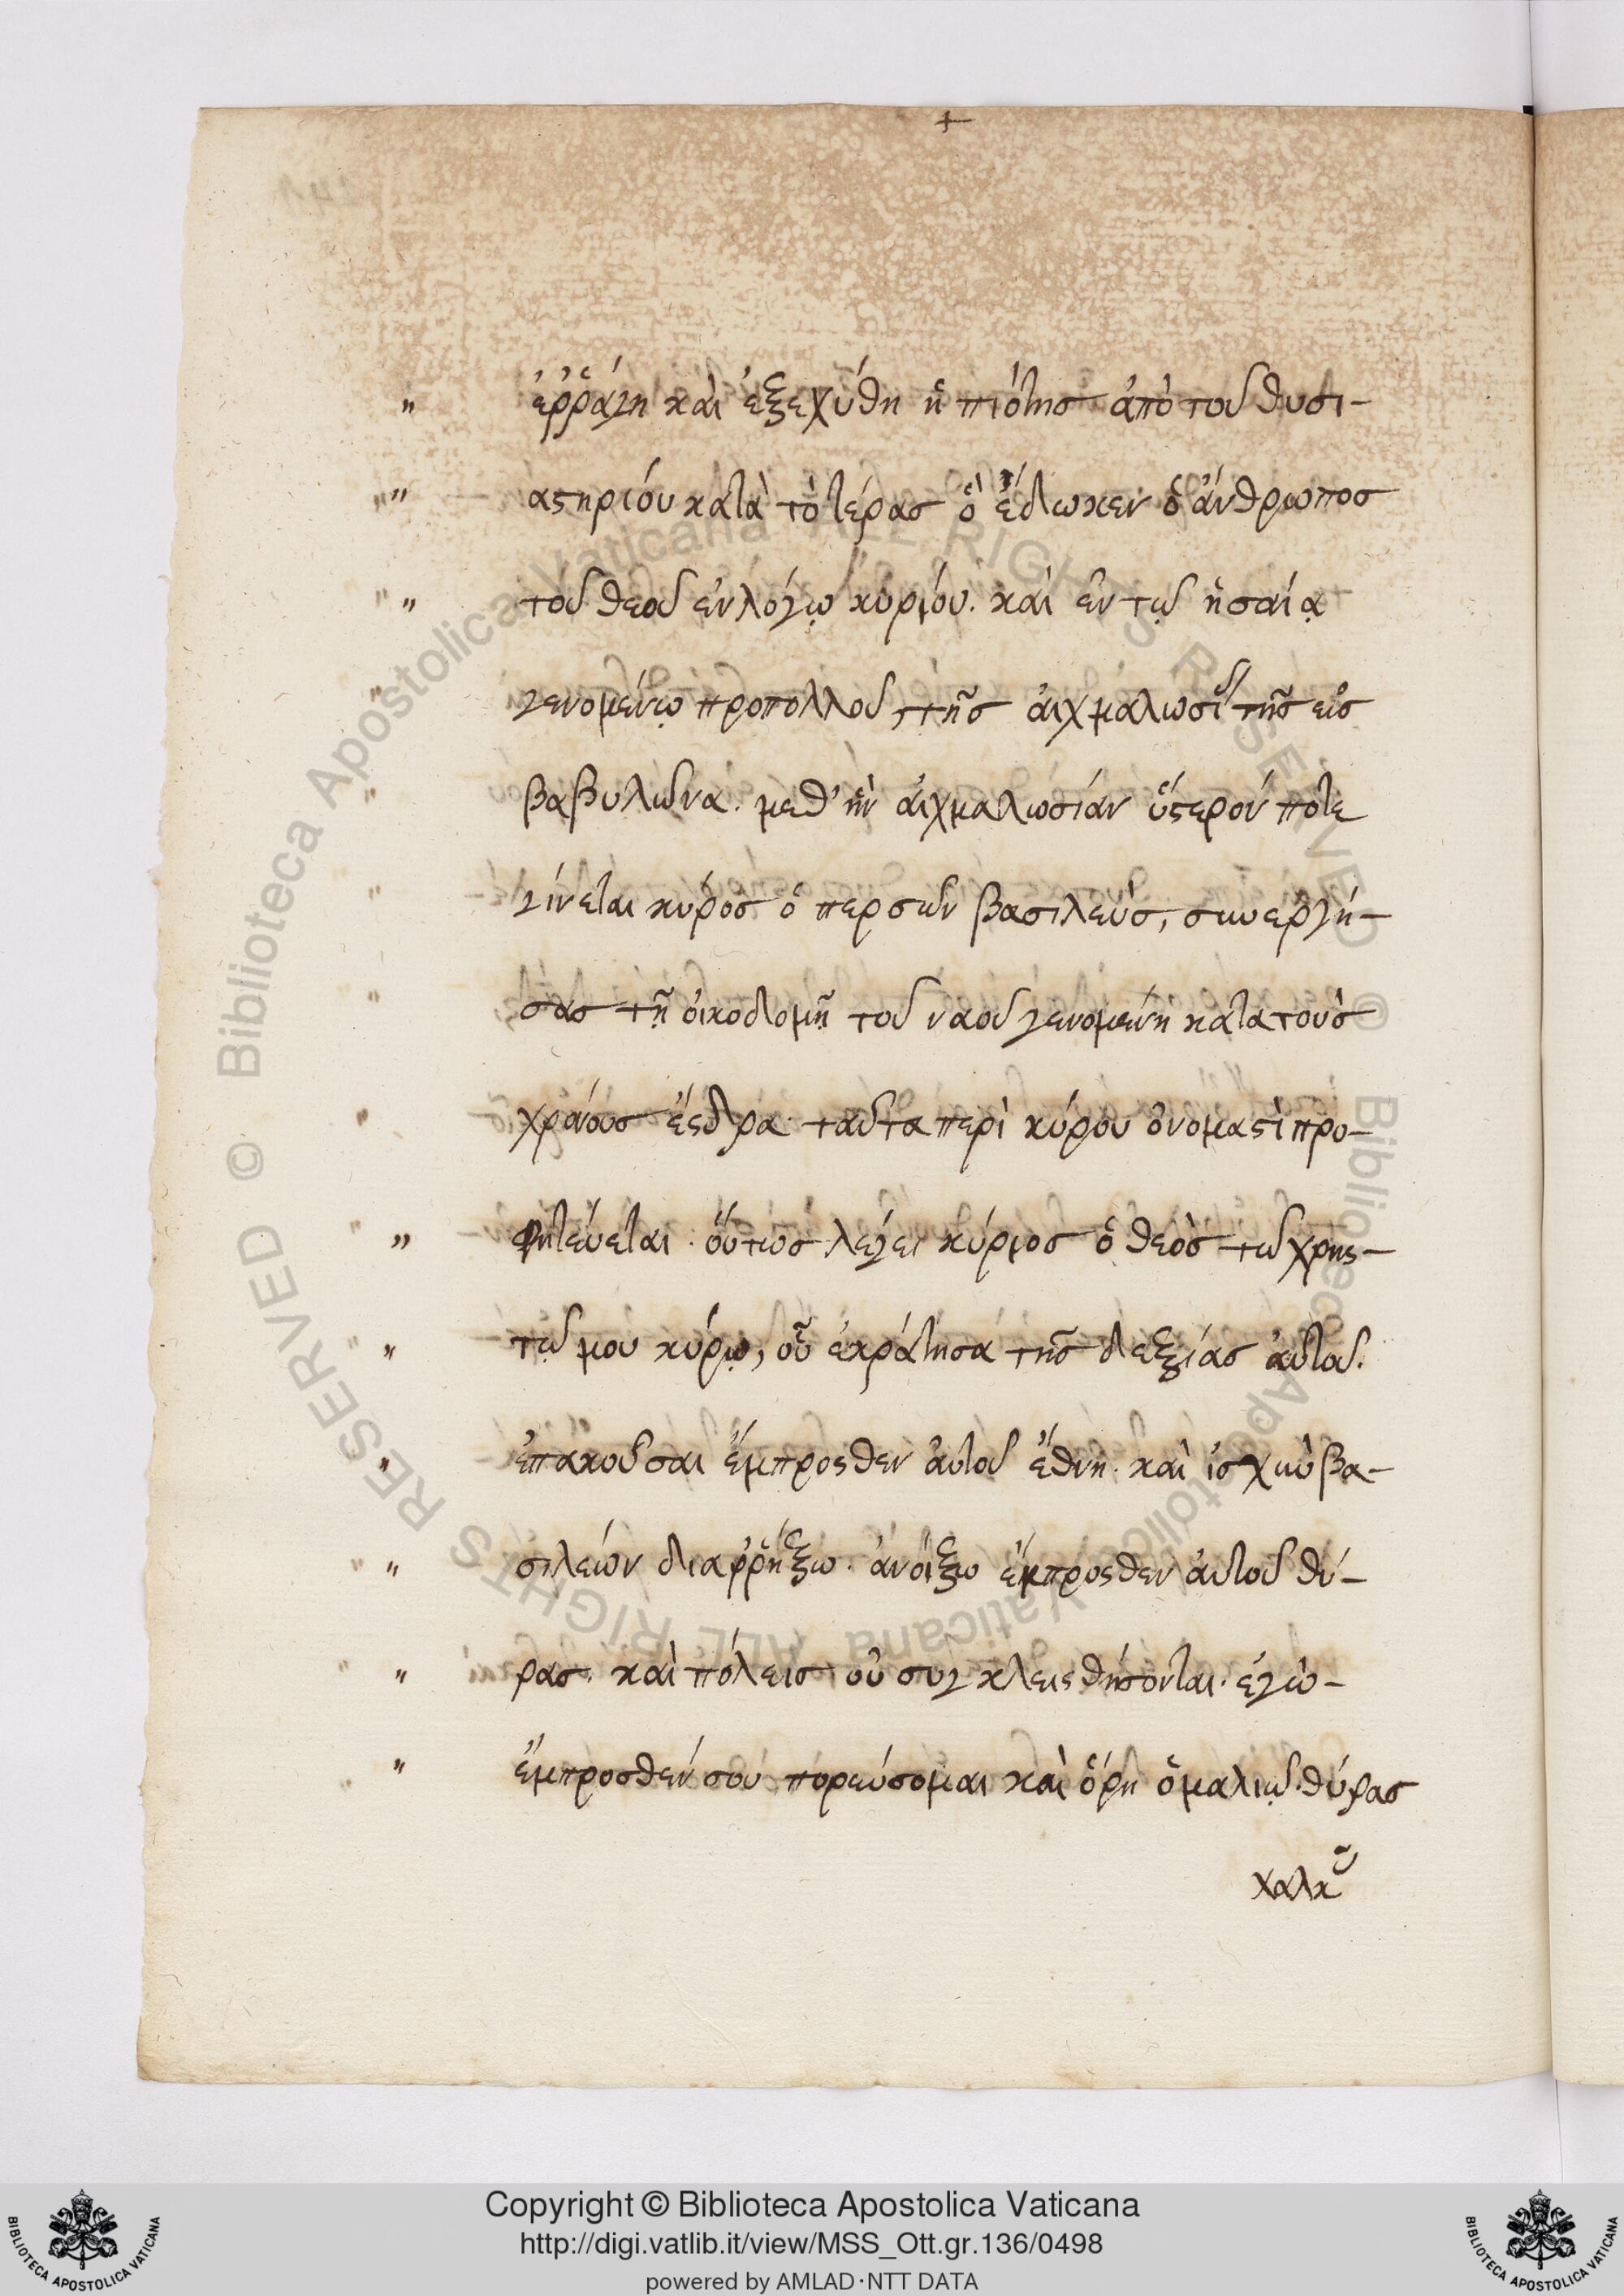 +
" ἐῤῥάγη καὶ ἐξεχύθη ἡ πιότης ἀπὸ τοῦ θυσι-
" αστηρίου κατὰ τὸ τέρας ὃ ἔδωκεν ὁ ἄνθρωπος
" τοῦ θεοῦ ἐν λόγῳ κυρίου. καὶ ἐν τῷ ἡσαΐᾳ
γενομένῳ προπολλοῦ τῆς αἰχμαλωσί τῆς εἰς
βαβυλῶνα. μεθ' ἣν αἰχμαλωσίαν ὕστερόν ποτε
γίνεται κύρος ὁ περσῶν βασιλεὺς, συνεργή-
σας τῇ οἰκοδομῇ τοῦ ναοῦ γενομένη κατα τοὺς
χρόνους ἔσδρα. ταῦτα περὶ κύρου ὀνομαστὶ προ-
" φητεύεται. οὕτως λέγει κύριος ὁ θεὸς τῶ χρησ-
" τῷ μου κύρῳ, οὗ ἐκράτησα τῆς δεξιάς αὐτοῦ.
" ἐπακοῦσαι ἔμπροσθεν αὐτοῦ ἔθνη. καὶ ἰσχὺν βα-
" σιλέων διαῤῥήξω. ἀνοίξω ἔμπροσθεν αὐτοῦ θύ-
" ρας. καὶ πόλεις οὐ συγκλεισθήσονται. ἐγὼ-
" ἔμπροσθέν σου πορεύσομαι καὶ ὄρη ὁμαλιῶ. θύρας
χαλκ
Copyright © Biblioteca Apostolica Vaticana
http://digi.vatlib.it/view/MSS_Ott.gr.136/0498
powered by AMLAD·NTT DATA
BIBLIOTECA APOSTOLICA VATICANA
BIBLIOTECA APOSTOLICA VATICANA
© Biblioteca Apostolica Vaticana ALL RIGHTS RESERVED © Biblioteca Apostolica Vaticana ALL RIGHTS RESERVED